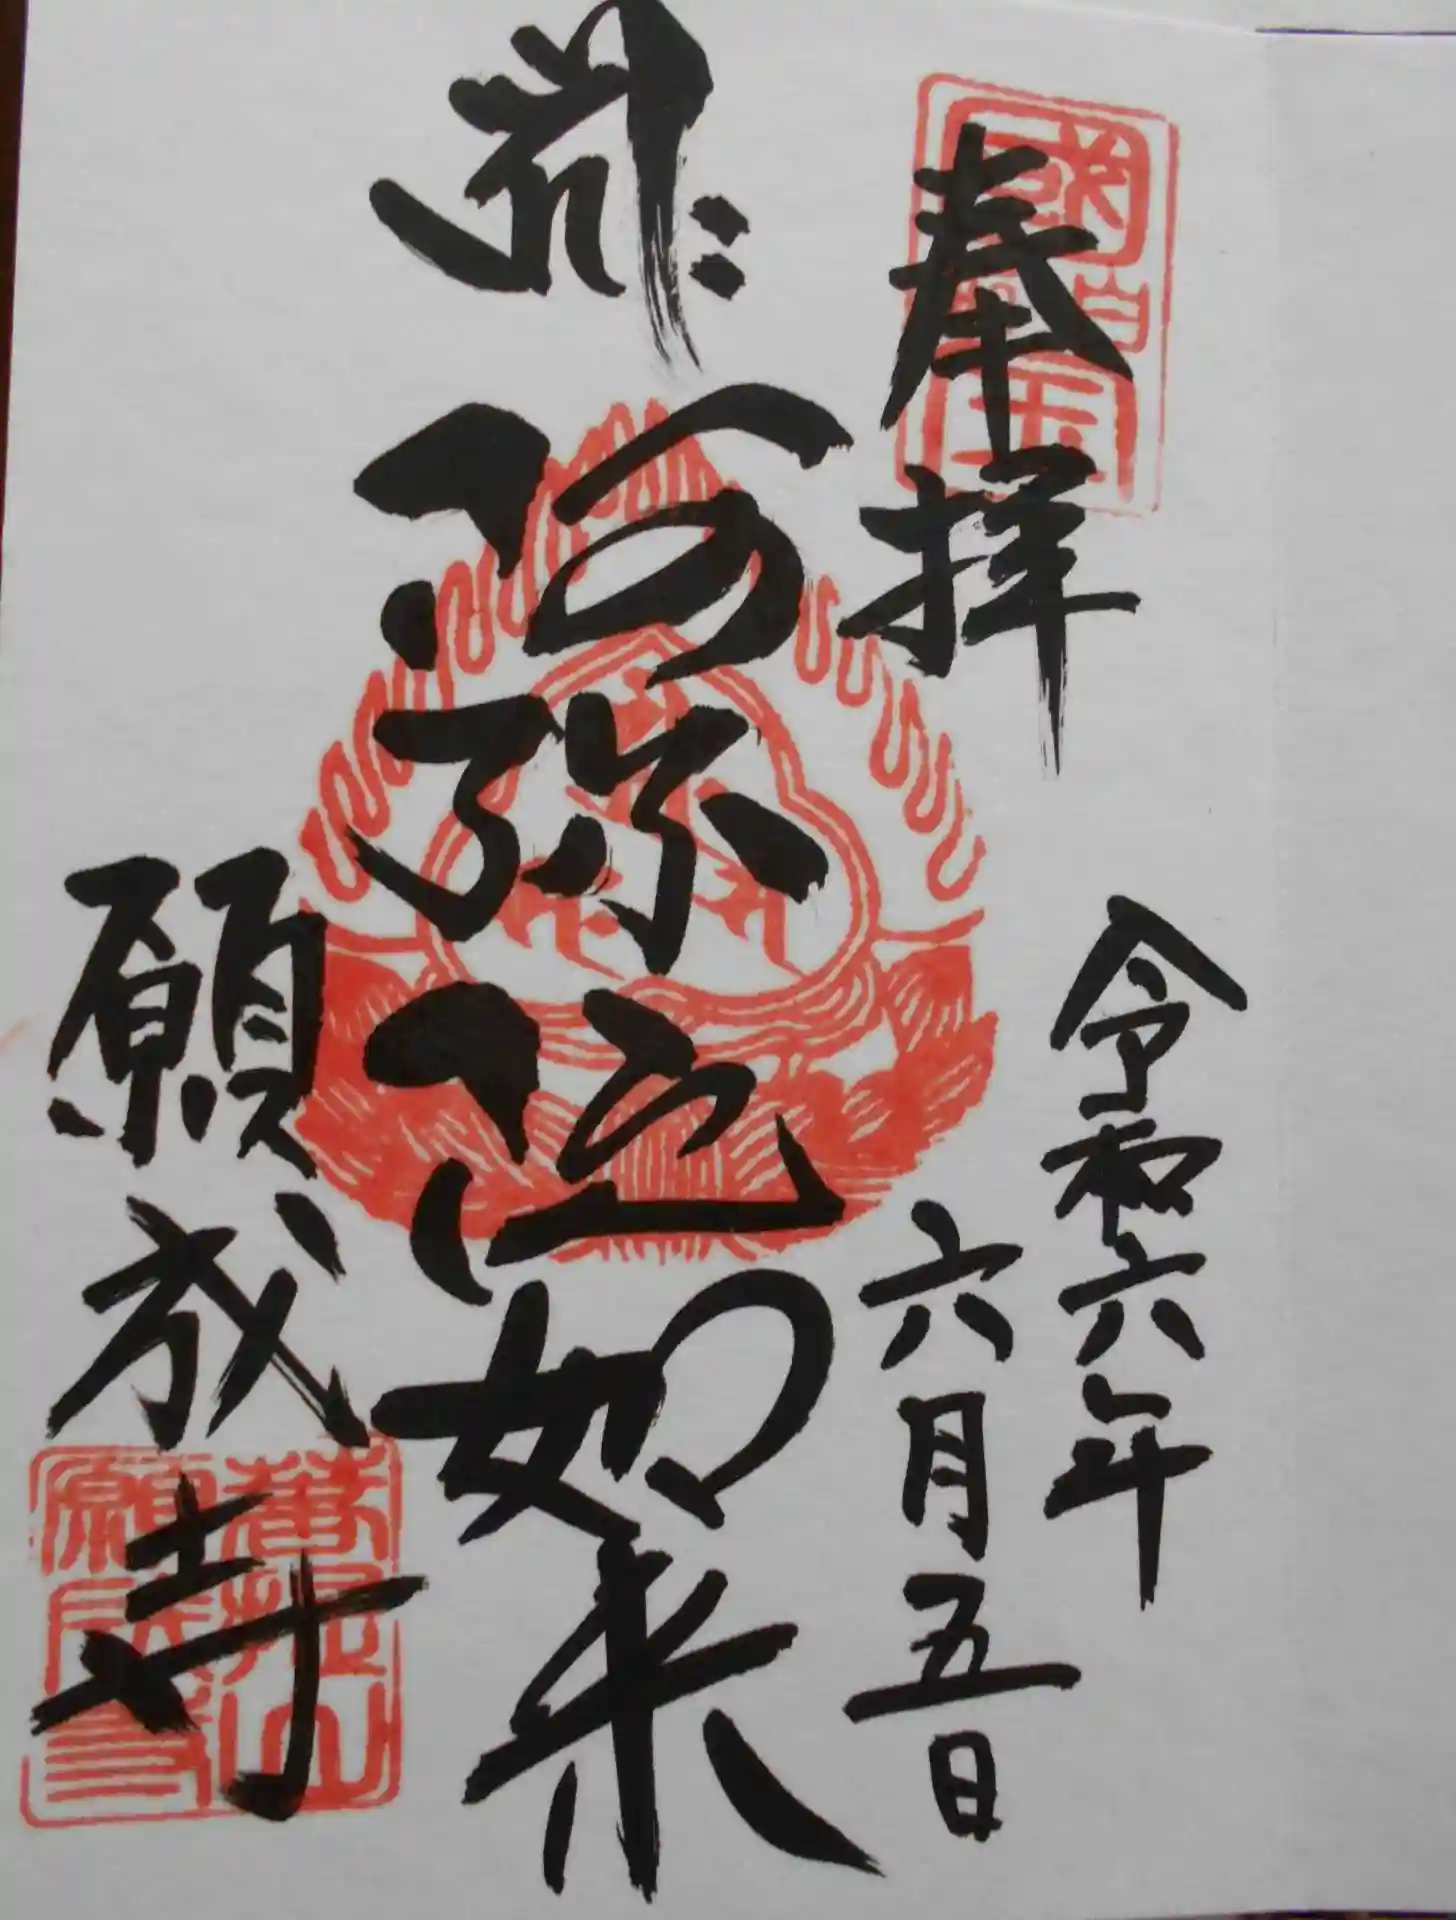 奉拝
令和六年
六月五日
阿弥陀如来
願成寺